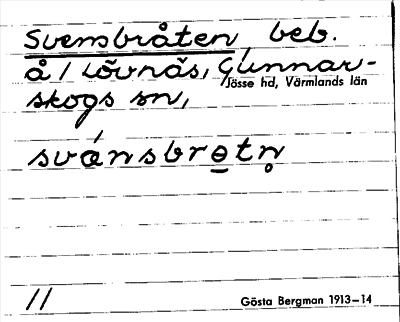 Svensbråten, beb.
å / Lövnäs, Gunnar-
Jösse hd, Värmlands län
skogs sn,
svánsbro̲tn̥
//
Gösta Bergman 1913–14